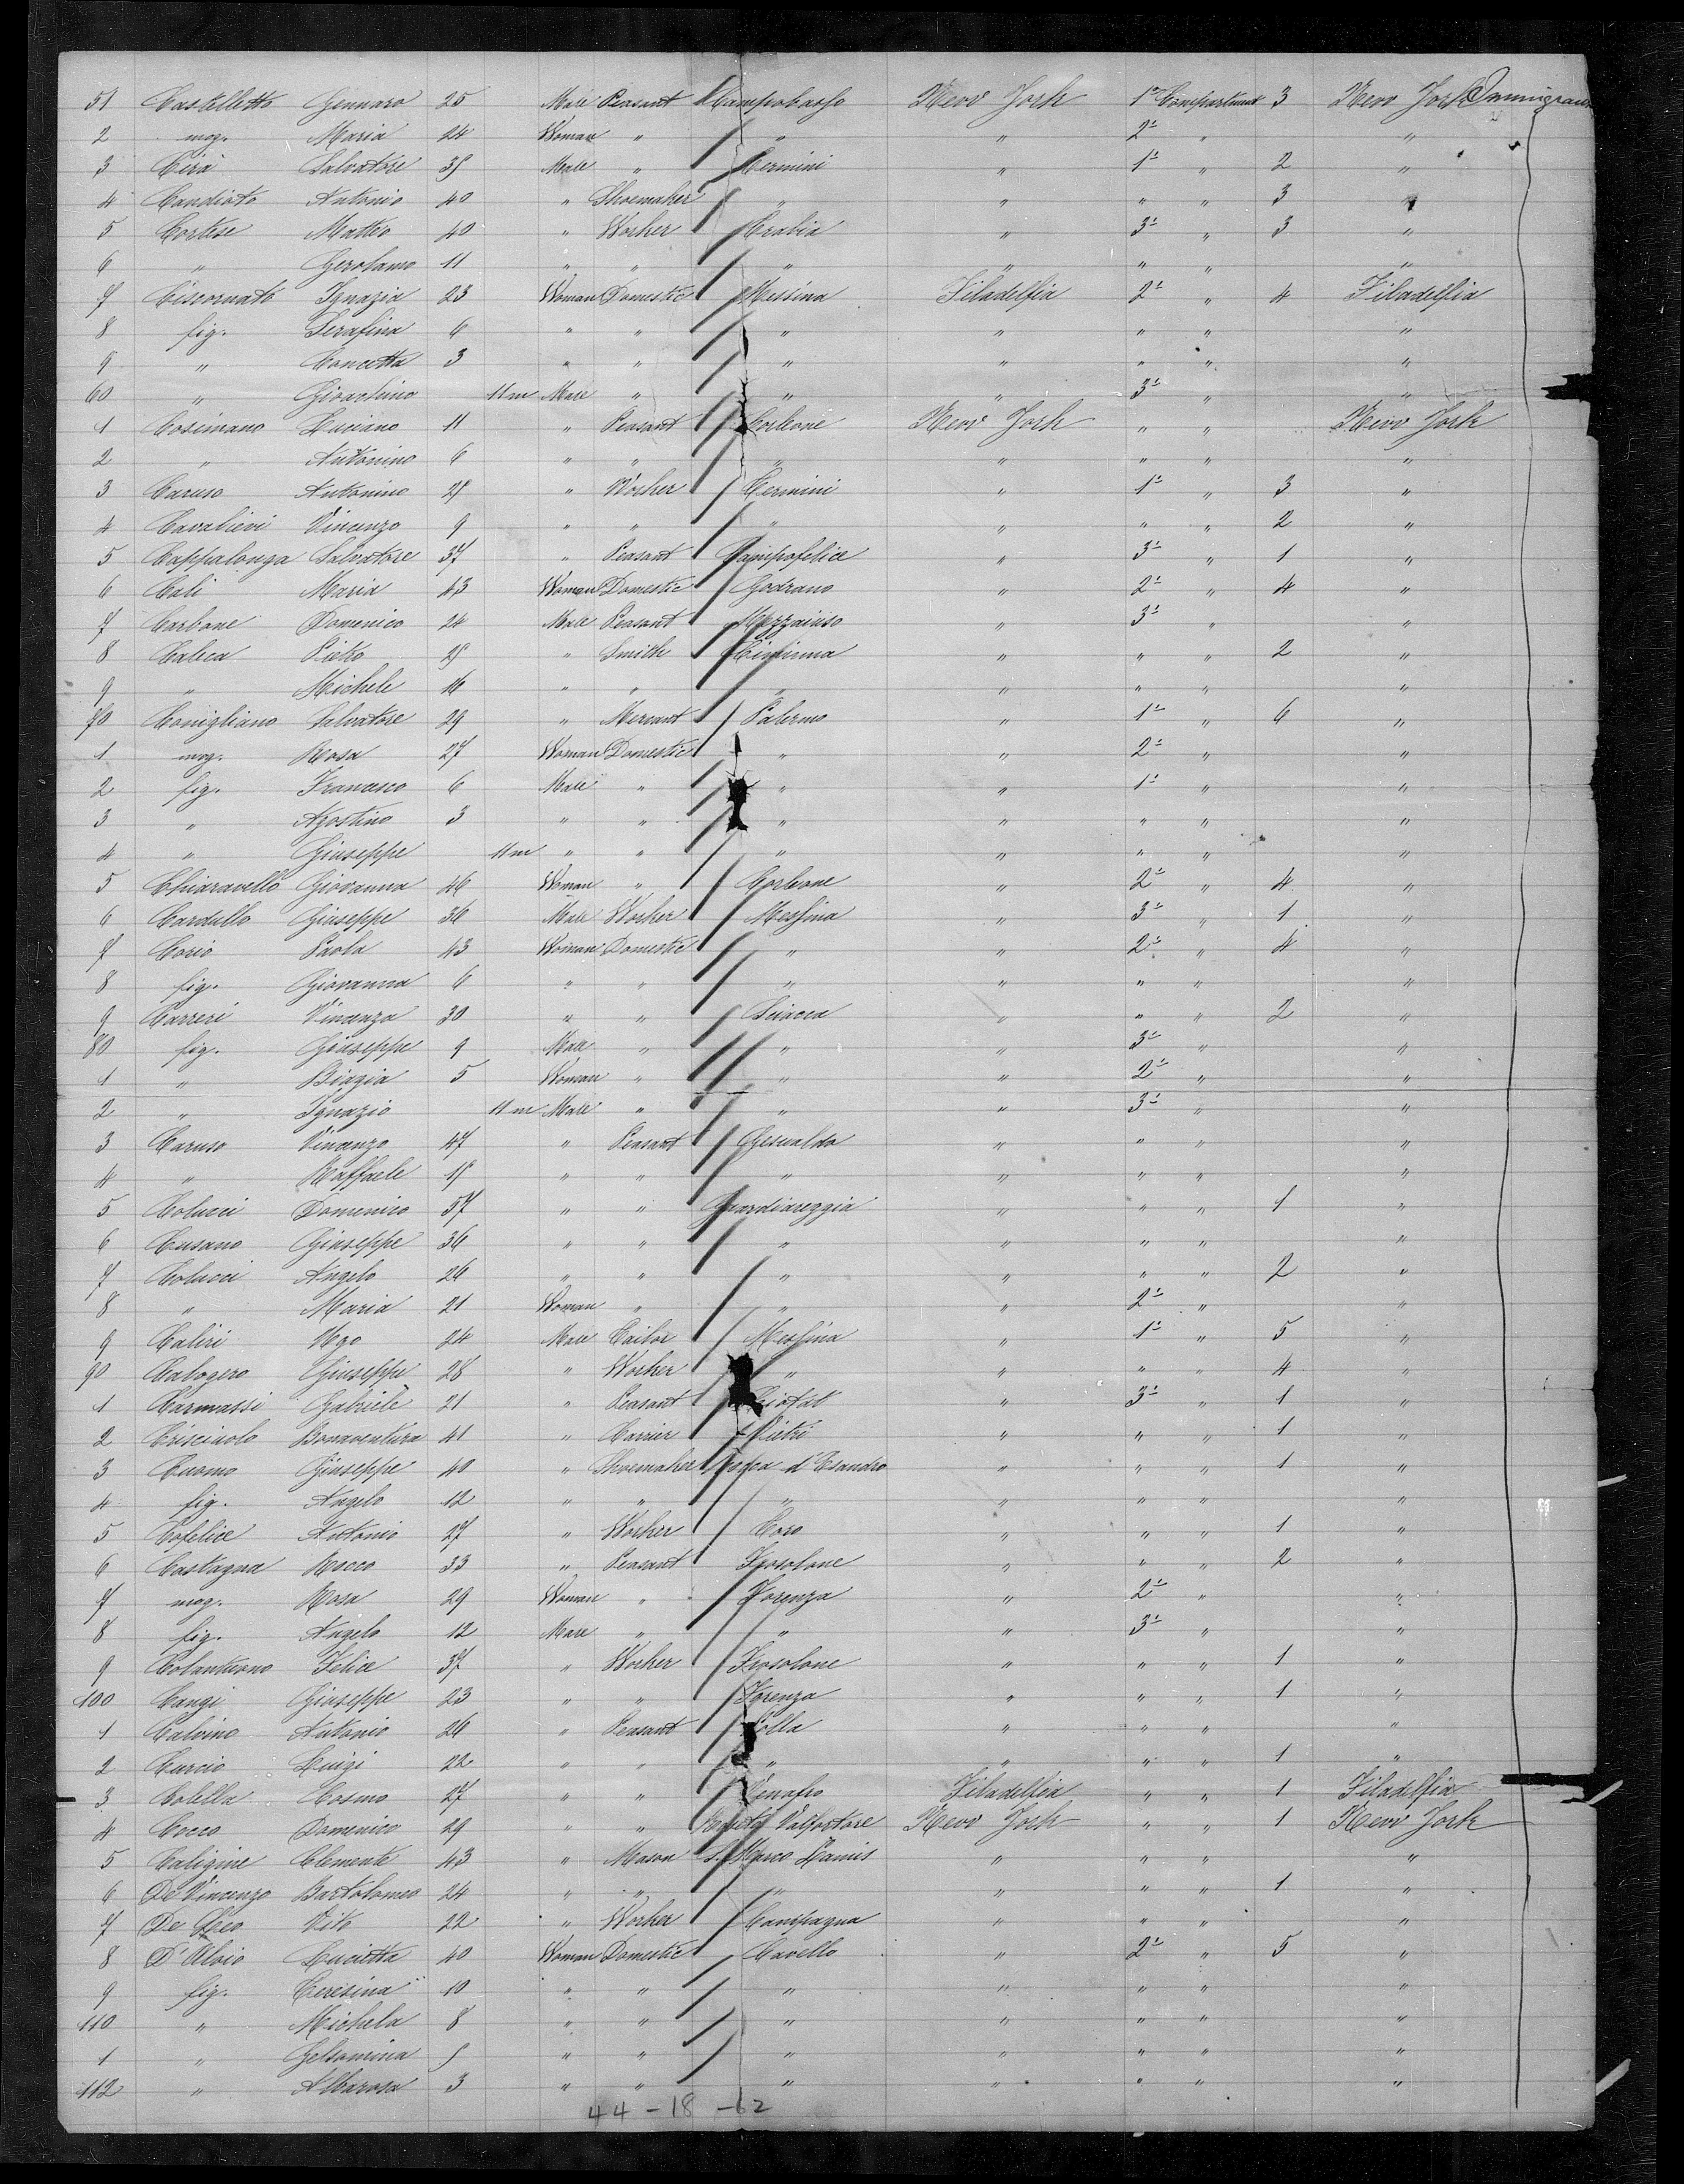 51 Castelletto Gennaro 25 Male Peasant Campobasso New York 1º Compartment 3 New York Immigrant
2 mog. Maria 24 Woman " " " 2º " "
3 Cirà Salvatore 35 Male " Termini " 1º " 2 "
4 Candioto Antonio 40 " Shoemaker " " " " 3 "
5 Cortese Matteo 40 " Worker Trabia " 3º " 3 "
6 " Gerolamo 11 " " " " " " "
7 Ciscornato Ignazia 23 Woman Domestic Messina Filadelfia 2º " 4 Filadelfia
8 fig. Serafina 6 " " " " " " "
9 " Concetta 3 " " " " " " "
60 " Gioachino 11 m Male " " " 3º " "
1 Cosimano Luciano 11 " Peasant Corleone New York " " New York
2 " Antonino 6 " " " " " " "
3 Caruso Antonino 25 " Worker Termini " 1º " 3 "
4 Cavalieri Vincenzo 9 " " " " " " 2 "
5 Cappalonga Salvatore 37 " Peasant Campofelice " 3º " 1 "
6 Calì Maria 43 Woman Domestic Godrano " 2º " 4 "
7 Carbone Domenico 24 Male Peasant Mezzoiuso " 3º " "
8 Caleca Pietro 25 " Smith Ciminna " " " 2 "
9 " Michele 16 " " " " " " "
70 Conigliano Salvatore 29 " Mercant Palermo " 1º " 6 "
1 mog. Rosa 27 Woman Domestic " " 2º " "
2 fig. Francesco 6 Male " " " 1º " "
3 " Agostino 3 " " " " " " "
4 " Giuseppe 11 m " " " " " " "
5 Chiaravello Giovanna 46 Woman " Corleone " 2º " 4 "
6 Cardullo Giuseppe 36 Male Worker Messina " 3º " 1 "
7 Corio Paola 43 Woman Domestic " " 2º " 4 "
8 fig. Giovanna 6 " " " " " " "
9 Carreri Vincenza 30 " " Sciacca " " " 2 "
80 fig. Giuseppe 9 Male " " " 3º " "
1 " Biagia 5 Woman " " " 2º " "
2 " Ignazio 11 m Male " " " 3º " "
3 Caruso Vincenzo 47 " Peasant Gesualdo " " " "
4 " Raffaele 15 " " " " " " "
5 Colucci Domenico 57 " " Guardiareggia " " " 1 "
6 Cusano Giuseppe 36 " " " " " " "
7 Colucci Angelo 26 " " " " " " 2 "
8 " Maria 21 Woman " " " 2º " "
9 Caliri Ugo 24 Male Tailor Messina " 1º " 5 "
90 Calogero Giuseppe 28 " Worker " " " " 4 "
1 Carmassi Gabriele 21 " Peasant " 3º " 1 "
2 Criscinolo Bonaventura 41 " Carrier Pietri " " " 1 "
3 Cuomo Giuseppe 40 " Shoemaker d'Esandro " " " 1 "
4 fig. Angelo 12 " " " " " " "
5 Cofelice Antonio 27 " Worker Toro " " " 1 "
6 Castagna Rocco 33 " Peasant Frosolone " " " 2 "
7 mog. Rosa 29 Woman " Forenza " 2º " "
8 fig. Angelo 12 Male " " " 3º " "
9 Colantuono Felice 37 " Worker Frosolone " " " 1 "
100 Cangi Giuseppe 23 " " Forenza " " " 1 "
1 Calvino Antonio 26 " Peasant " " " "
2 Curcio Luigi 22 " " " " " " 1 "
3 Colella Cosmo 27 " " Venafro Filadelfia " " 1 Filadelfia
4 Cocco Domenico 29 " " Valfortore New York " " 1 New York
5 Caligine Clemente 43 " Mason S. Marco Lamis " " " "
6 De Vincenzo Bartolomeo 24 " " " " " " 1 "
7 De Ceo Vito 22 " Worker Campagna " " " "
8 D'Aloio Lucietta 40 Woman Domestic Lavello " 2º " 5 "
9 fig. Teresina 10 " " " " " " "
110 " Michela 8 " " " " " " "
1 " Gelsomina 5 " " " " " " "
112 " Albarosa 3 " " " " " " "
44 - 18 - 62